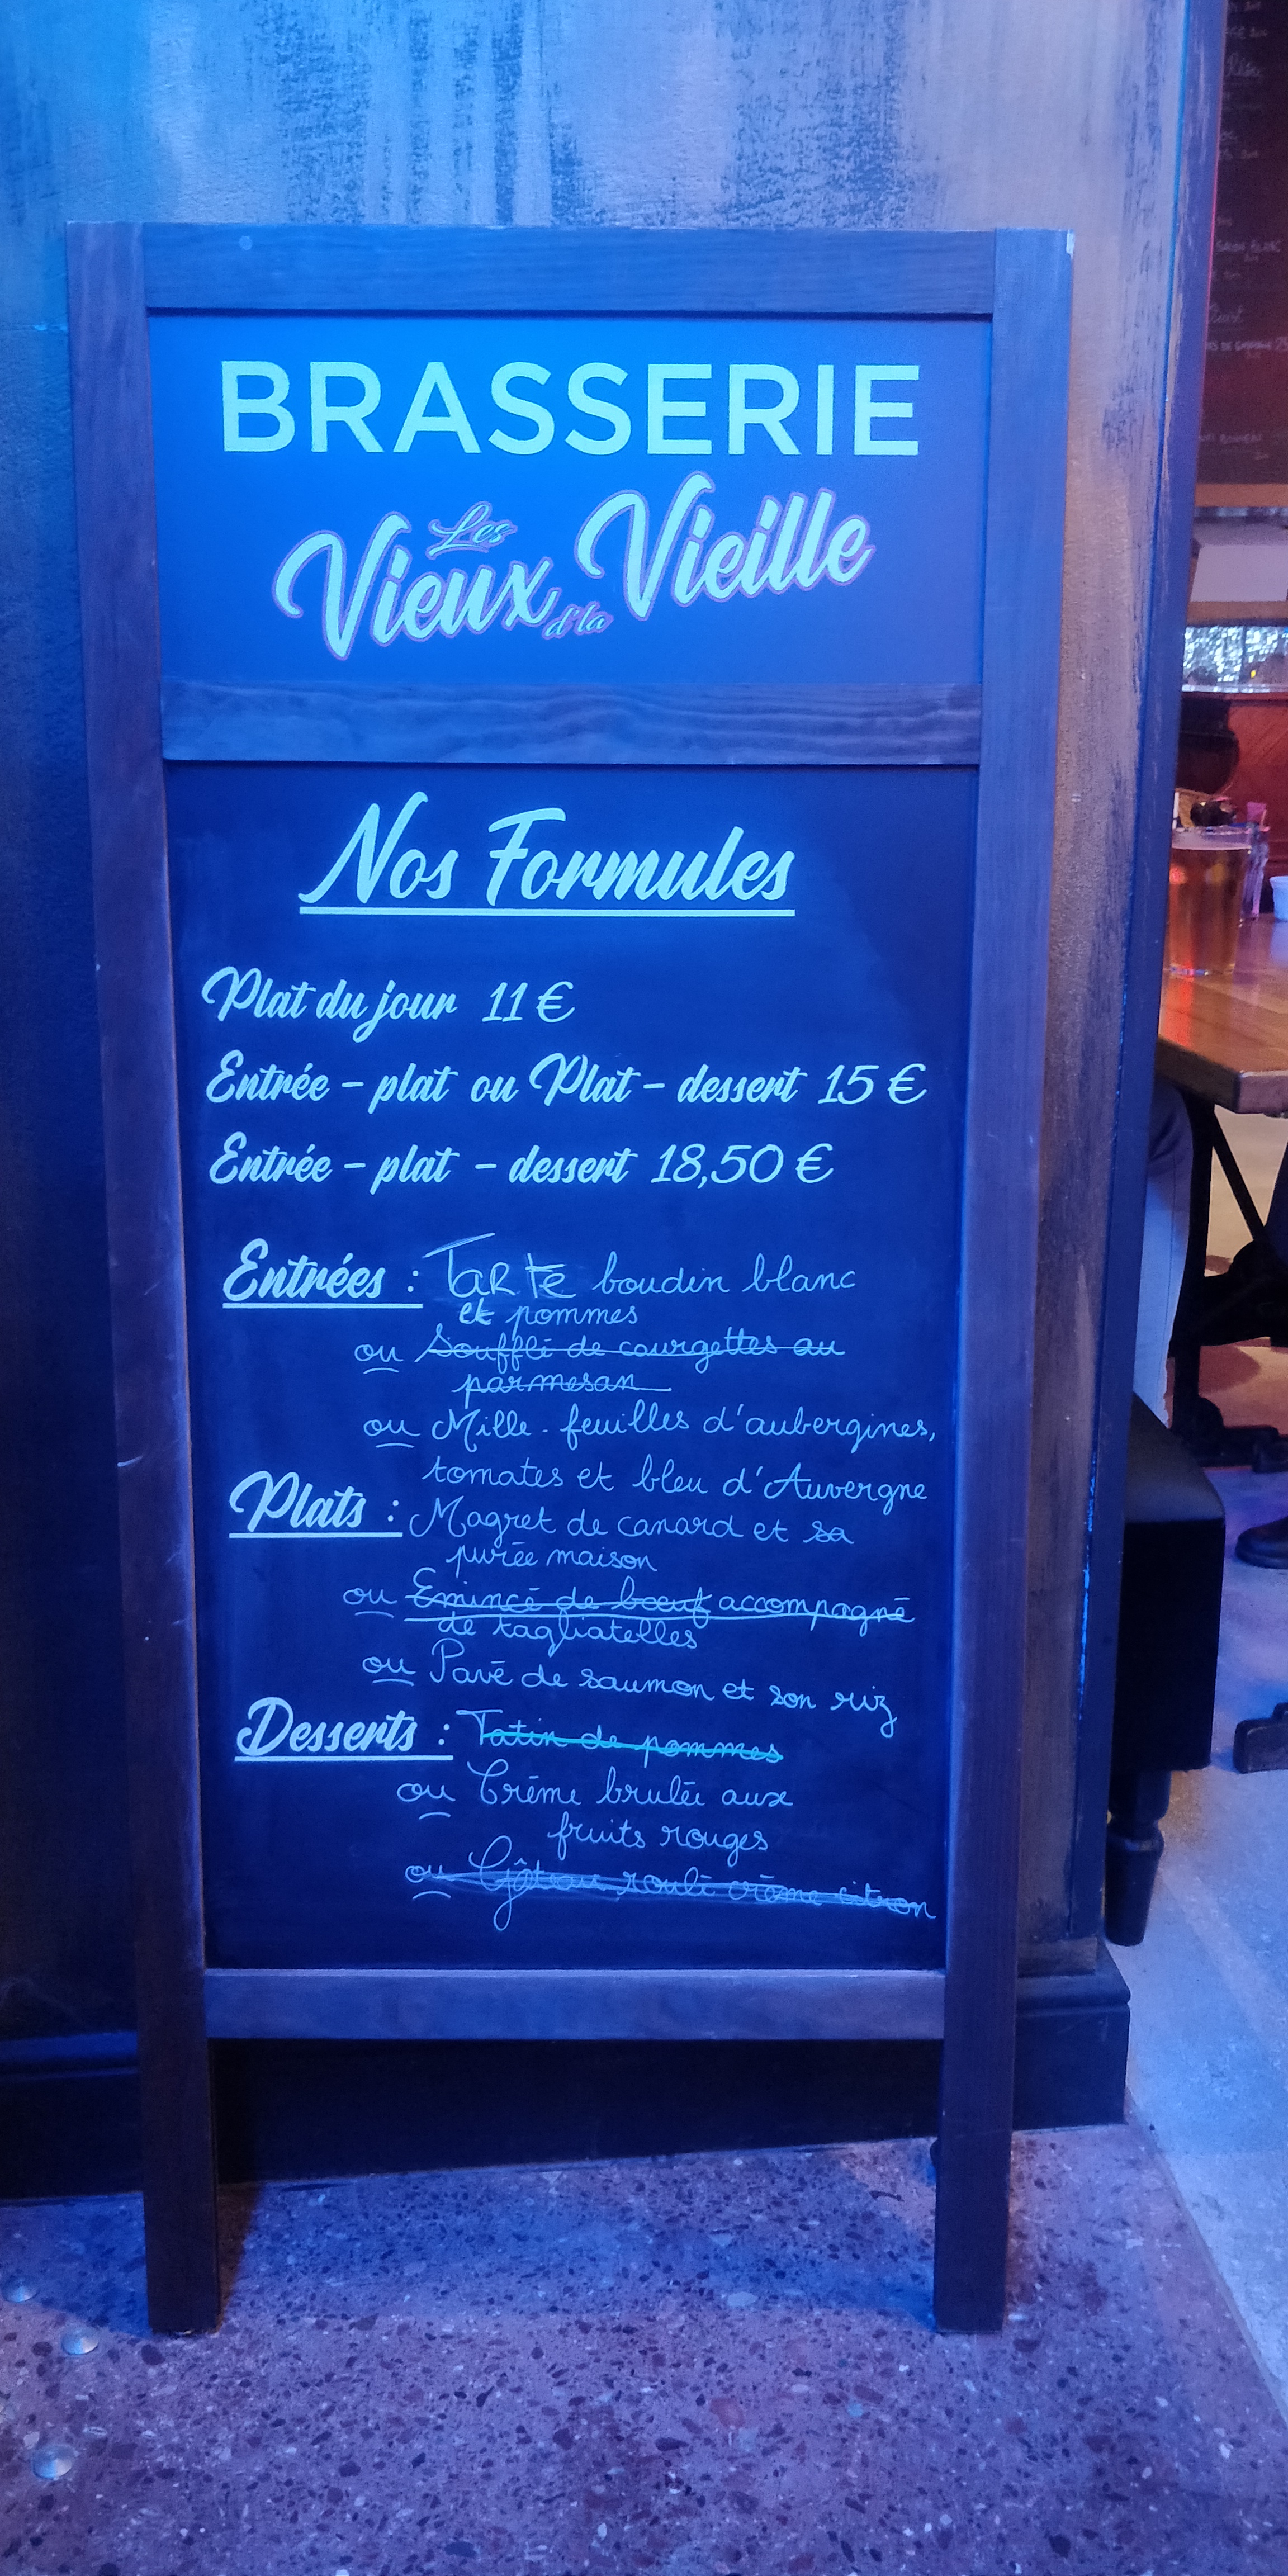 BRASSERIE
Les
Vieux d'la Vieille
Nos Formules
Plat du jour 11 €
Entrée - plat ou Plat - dessert 15 €
Entrée - plat - dessert 18,50 €
Entrées : Tarte boudin blanc
et pommes
ou Soufflé de courgettes au
parmesan
ou Mille-feuilles d'aubergines,
tomates et bleu d'Auvergne
Plats : Magret de canard et sa
purée maison
ou Emincé de bœuf accompagné
de tagliatelles
ou Pavé de saumon et son riz
Desserts : Tatin de pommes
ou Crème brulée aux
fruits rouges
ou Gâteau roulé crème citron